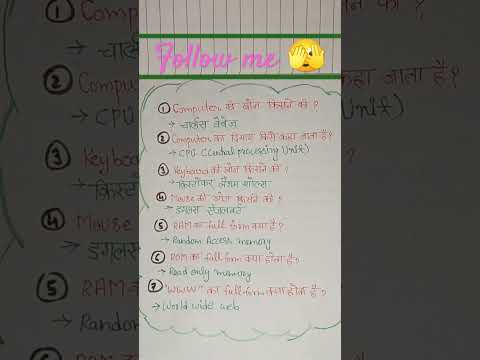 Follow me 🫣
① Computer की खोज किसने की ?
→ चार्ल्स बैबेज
② Computer का दिमाग किसे कहा जाता है?
→ CPU (Central processing Unit)
③ Keyboard की खोज किसने की ?
→ क्रिस्टोफर लैथम शोल्स
④ Mouse की खोज किसने की ?
→ डगलस ऐंजलबर्ट
⑤ RAM का full form क्या है?
→ Random Access memory
⑥ ROM का full form क्या होता है?
→ Read only memory
⑦ "WWW" का full form क्या होता है ?
→ World wide web
② Computer
कहा जाता है?
→ CPU
Unit)
③ Keyboard
④ Mouse
→ डगलस
⑤ RAM
→ Random